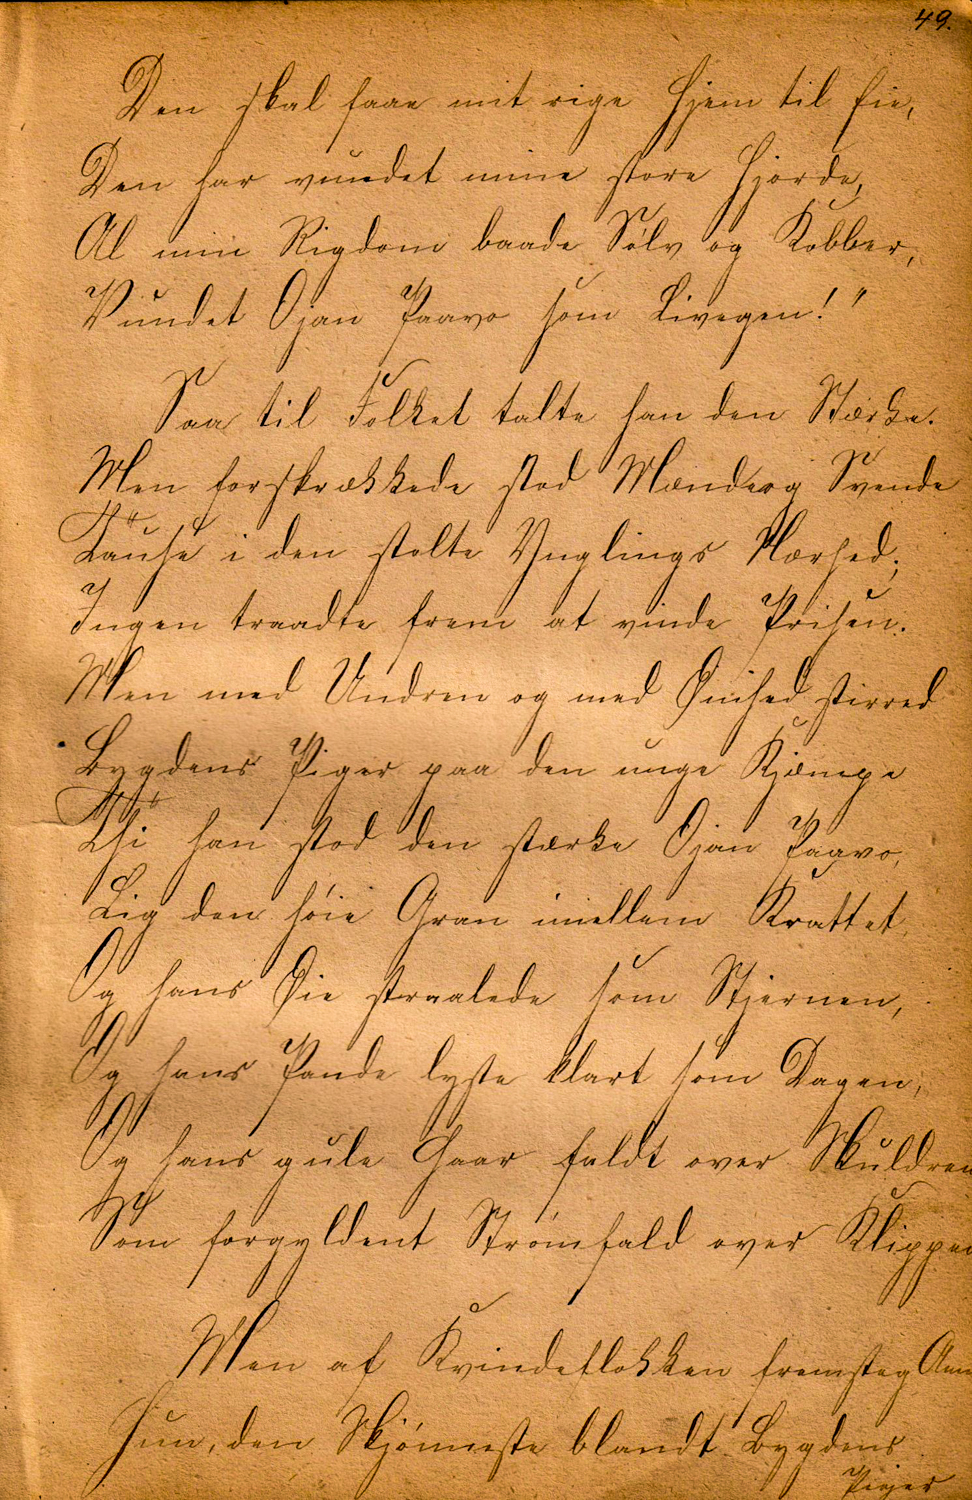 49.
Den skal faae mit rige Hjem til Eie,
Den har vundet mine store Hjorde,
Al min Rigdom baade Sølv og Kobber,
Vundet Ojan Paavo som Livegen!"
Saa til Folket talte han den Stærke.
Men forskrækkede stod Mænd og Svende
Tause i den stolte Ynglings Nærhed;
Ingen traadte frem at vinde Prisen.
Men med Undren og med Ømhed stirred
Bygdens Piger paa den unge Kjæmpe
Thi han stod den stærke Ojan Paavo,
Lig den høie Gran imellem Krattet,
Og hans Øie straalede som Stjernen,
Og hans Pande lyste klart som Dagen,
Og hans gule Haar faldt over Skuldren
Som forgyldent Strømfald over Klippen
Men af Kvindeflokken fremsteg Ann
Hun, den Skjønneste blandt Bygdens
Piger